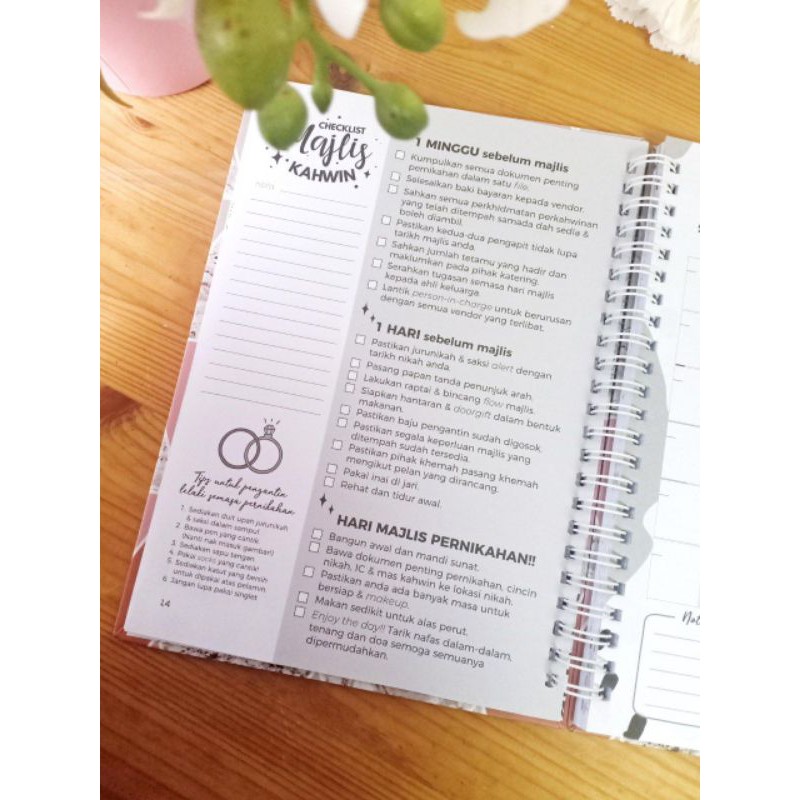 CHECKLIST
Majlis
KAHWIN
1 MINGGU sebelum majlis
Kumpulkan semua dokumen penting
pernikahan dalam satu file.
Selesaikan baki bayaran kepada vendor.
Sahkan semua perkhidmatan perkahwinan
yang telah ditempah samada dah sedia &
boleh diambil.
Pastikan kedua-dua pengapit tidak lupa
tarikh majlis anda.
Sahkan jumlah tetamu yang hadir dan
maklumkan pada pihak katering.
Serahkan tugasan semasa hari majlis
kepada ahli keluarga.
Lantik person-in-charge untuk berurusan
dengan semua vendor yang terlibat.
1 HARI sebelum majlis
Pastikan jurunikah & saksi alert dengan
tarikh nikah anda.
Pasang papan tanda penunjuk arah.
Lakukan raptai & bincang flow majlis.
Siapkan hantaran & doorgift dalam bentuk
makanan.
Pastikan baju pengantin sudah digosok.
Pastikan segala keperluan majlis yang
ditempah sudah tersedia.
Pastikan pihak khemah pasang khemah
mengikut pelan yang dirancang.
Pakai inai di jari.
Rehat dan tidur awal.
HARI MAJLIS PERNIKAHAN!!
Bangun awal dan mandi sunat.
Bawa dokumen penting pernikahan, cincin
nikah, IC & mas kahwin ke lokasi nikah.
Pastikan anda ada banyak masa untuk
bersiap & makeup.
Makan sedikit untuk alas perut.
Enjoy the day!! Tarik nafas dalam-dalam,
tenang dan doa semoga semuanya
dipermudahkan.
Tips untuk pengantin
lelaki semasa pernikahan
1. Sediakan duit upah jurunikah
& saksi dalam sampul
2. Bawa pen yang cantik!
(Nanti nak masuk gambar!)
3. Sediakan sapu tangan
4. Pakai socks yang cantik!
5. Sediakan kasut yang bersih
untuk dipakai atas pelamin.
6. Jangan lupa pakai singlet
14